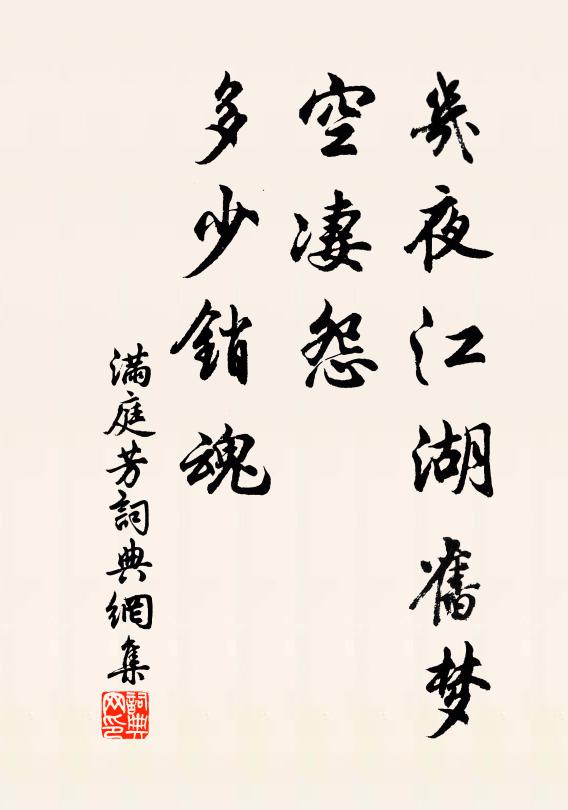 幾夜江湖舊梦
空凄怨
多少銷魂
满庭芳詞典網集
詞典网印